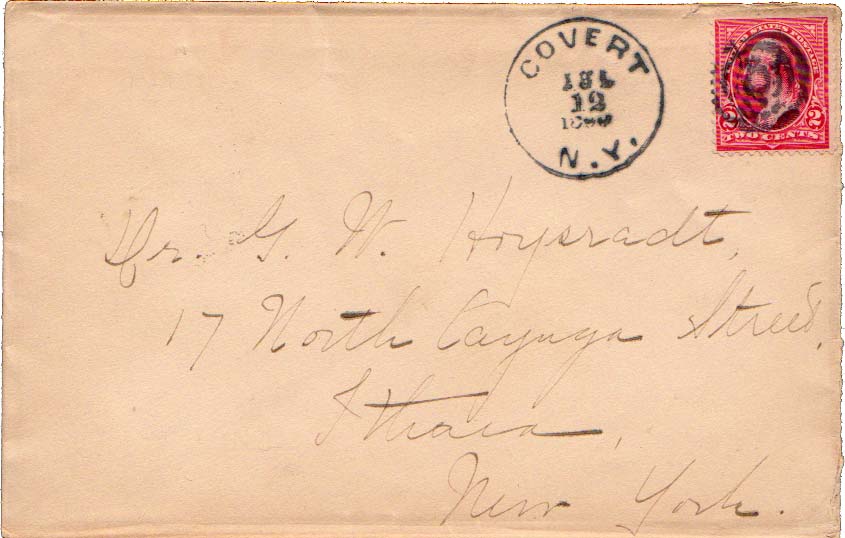 COVERT
JUL
12
N.Y.
UNITED STATES POSTAGE
2 2
TWO CENTS
Dr. G. W. Hoysradt,
17 North Cayuga Street,
Ithaca,
New York.